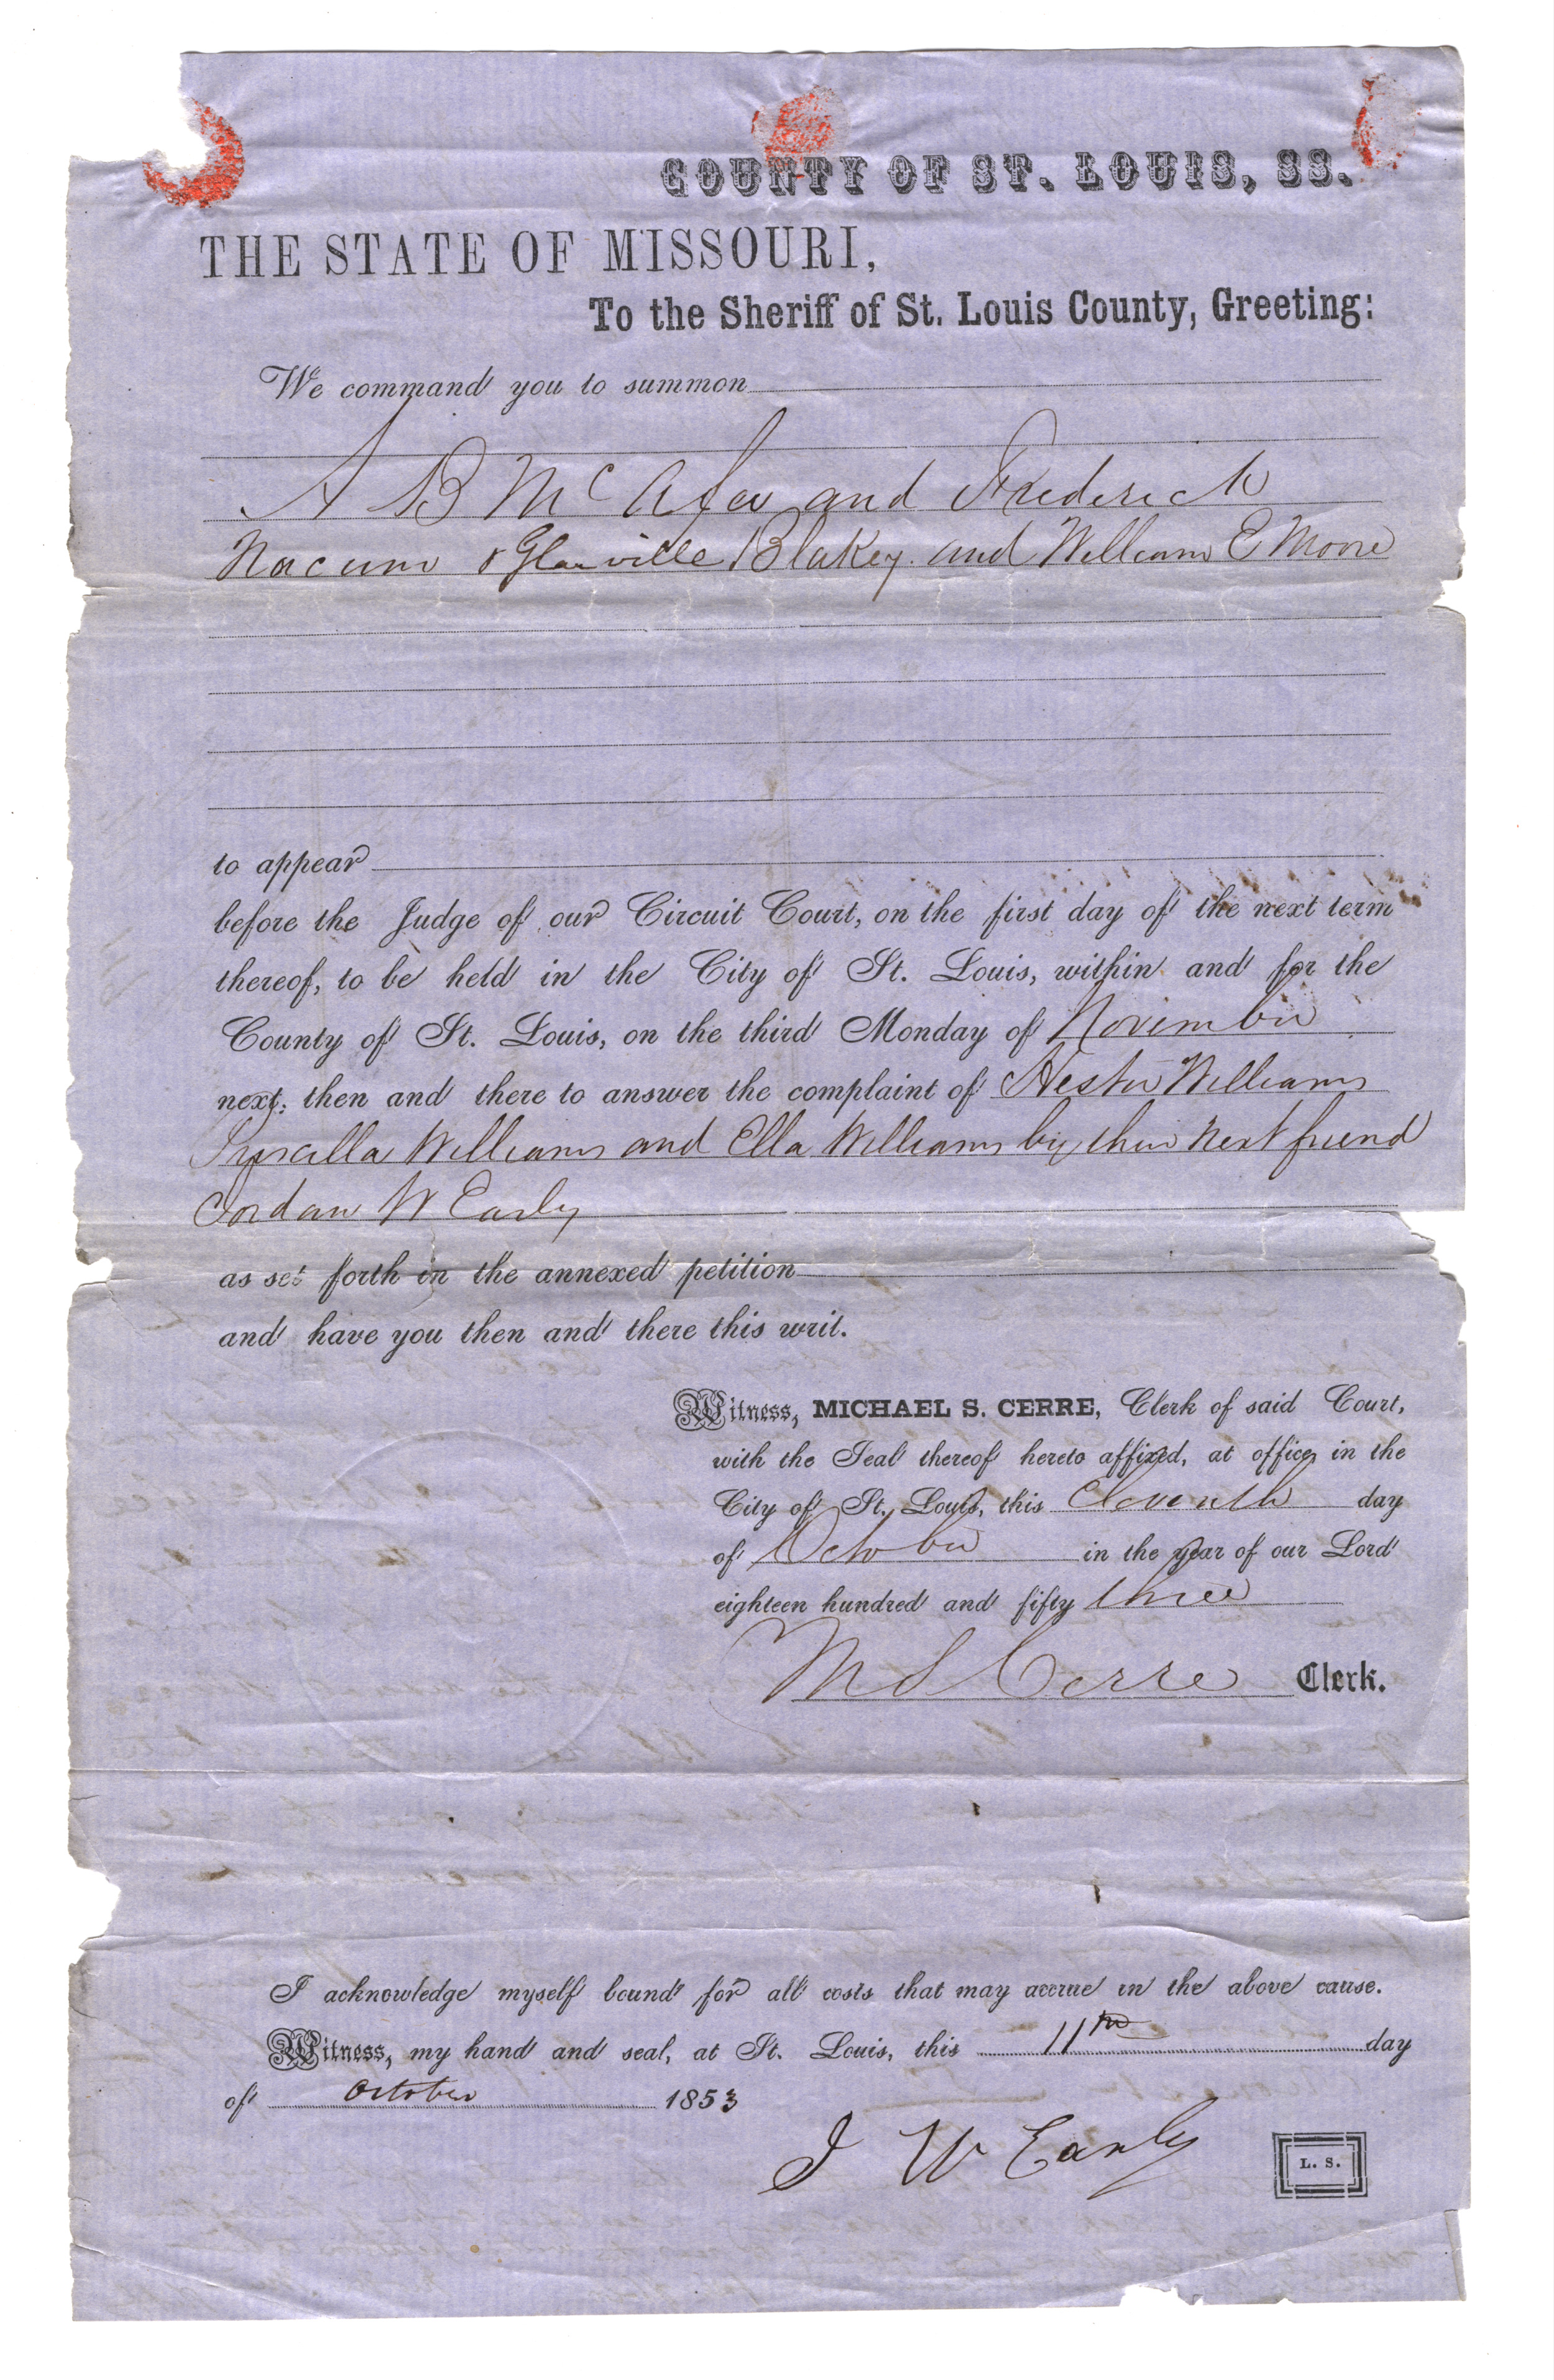 COUNTY OF ST. LOUIS, SS.
THE STATE OF MISSOURI,
To the Sheriff of St. Louis County, Greeting:
We command you to summon
A B McAfee and Frederick
Nacum & Glanville Blakey. and William E Moore
to appear
before the Judge of our Circuit Court, on the first day of the next term
thereof, to be held in the City of St. Louis, within and for the
County of St. Louis, on the third Monday of November
next: then and there to answer the complaint of Hester Williams
Priscilla Williams and Ella Williams by their next friend
Jordan W Early
as set forth in the annexed petition
and have you then and there this writ.
Witness, MICHAEL S. CERRE, Clerk of said Court,
with the Seal thereof hereto affixed, at office in the
City of St. Louis, this Eleventh day
of October in the year of our Lord
eighteen hundred and fifty three
M S Cerre Clerk.
I acknowledge myself bound for all costs that may accrue in the above cause.
Witness, my hand and seal, at St. Louis, this 11th day
of October 1853
J W Early
L. S.